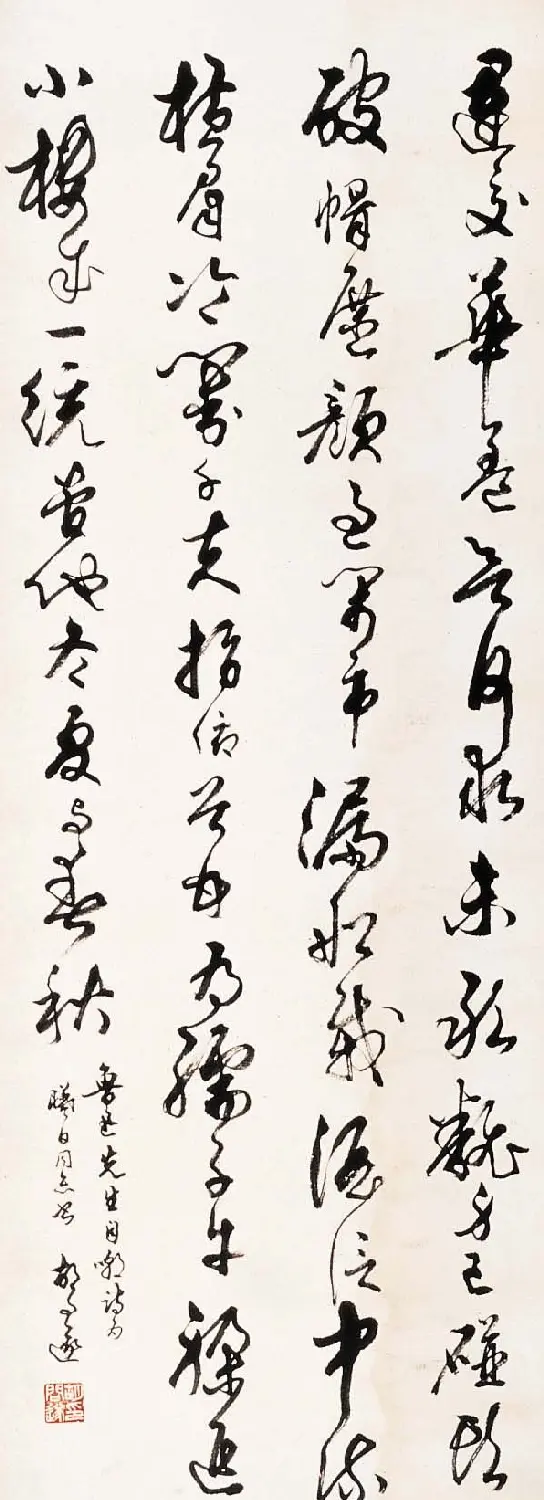 運交華蓋欲何求未敢飜身已碰頭
破帽遮顏過鬧市漏船載酒泛中流
橫眉冷對千夫指俯首甘為孺子牛躲進
小樓成一統管他冬夏與春秋
魯迅先生自嘲詩為
曦日同志書 胡問遂